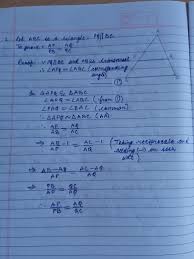 1. Let ABC is a triangle. PQ||BC
To prove = AP/PB = AQ/QC
Proof - PQ||BC and AB is transversal
∴ ∠APQ = ∠ABC (corresponding
angle)
In ΔAPQ & ΔABC
∠APQ = ∠ABC (from ①)
∠APQ = ∠BC (common)
∴ ΔAPQ ~ ΔABC
∴ AP/AB = AQ/AC
⇒ AB/AP - 1 = AC/AQ - 1 (Taking reciprocals and
adding on both
⇒ AB-AP/AP = AC-AQ/AQ
⇒ PB/AP = QC/AQ
∴ AP/PB = AQ/QC